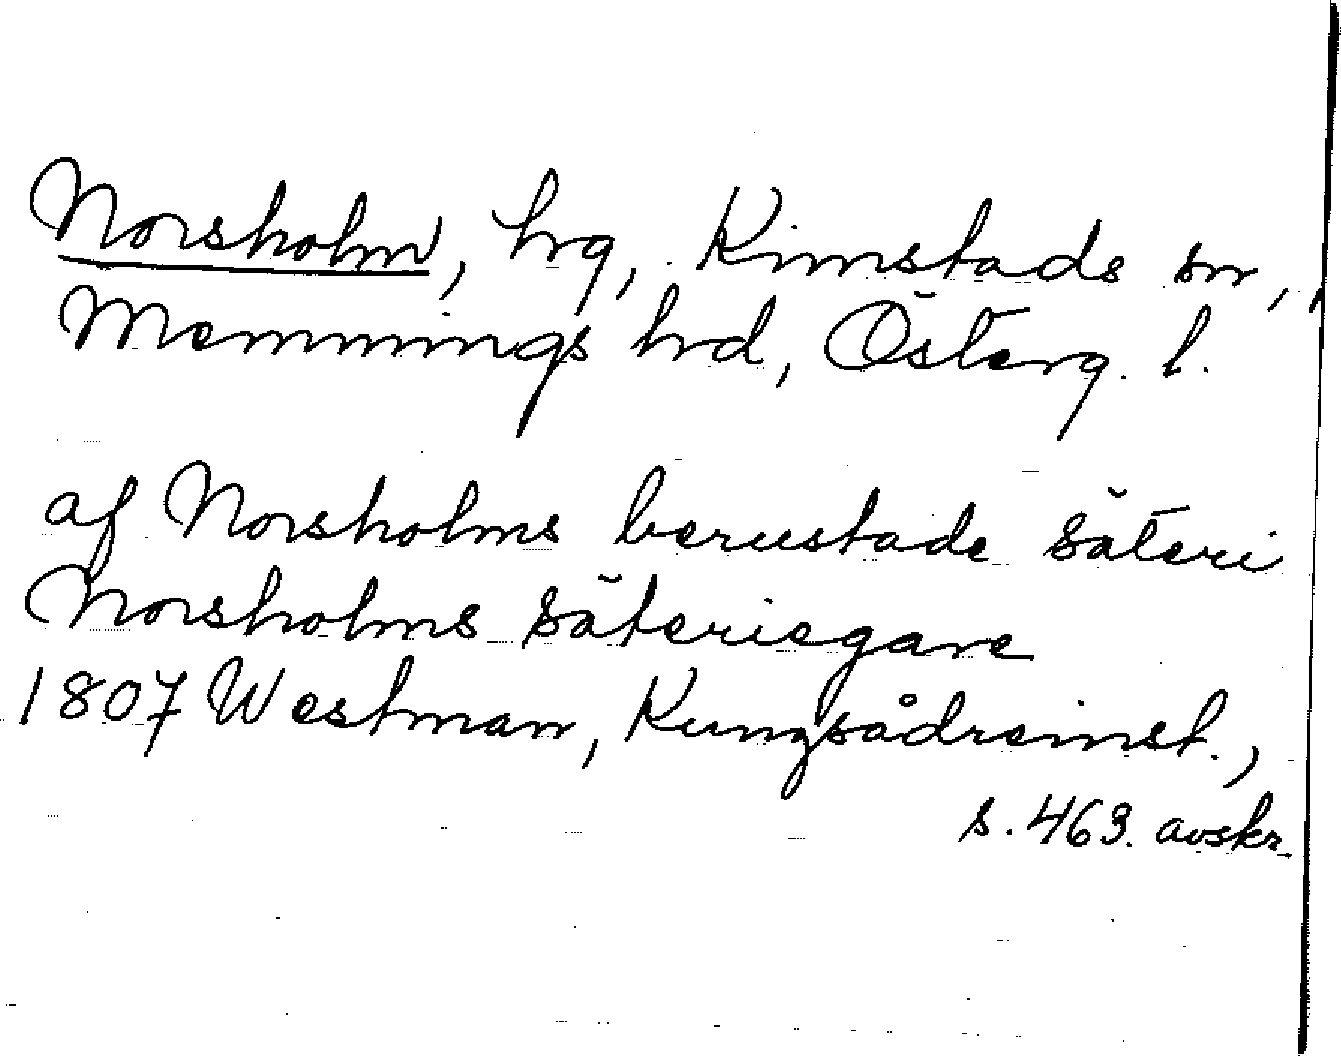 Norsholm, hrg, Kimstads sn,
Memmings hrd, Österg. l.
af Norsholms berustade säteri
Norsholms säteriegare
1807 Westman, Kungsådreinst.,
s. 463. avskr.